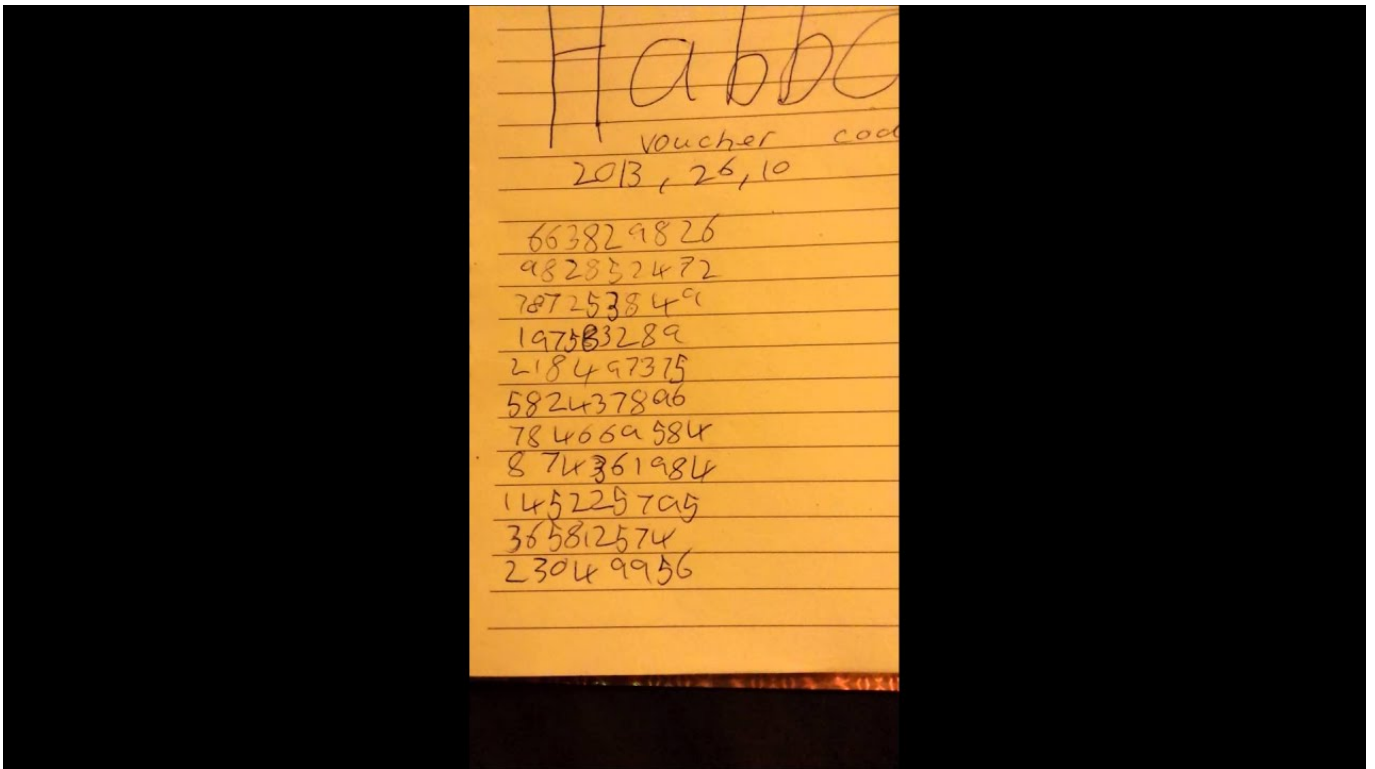 Habbo
voucher cod
2013, 26, 10
663829826
982852472
787253849
197583289
218497375
582437896
784669584
874361984
145225795
365812574
230499956